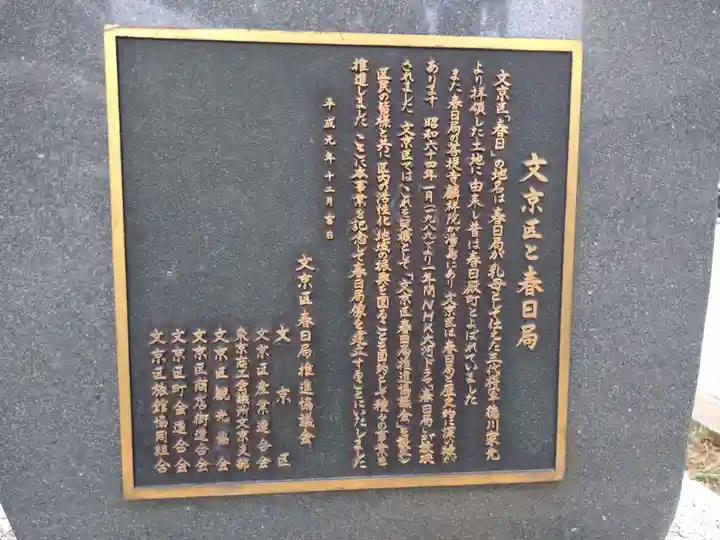 文京区と春日局
文京区「春日」の地名は 春日局が乳母として仕えた三代将軍 徳川家光
より拝領した土地に由来し 昔は春日殿町とよばれていました
また 春日局の菩提寺 麟祥院が湯島にあり 文京区は春日局と歴史的に深い縁が
あります 昭和六十四年一月(一九八九)より一年間 NHK大河ドラマ「春日局」が放映
されました 文京区ではこれを契機として、「文京区春日局推進協議会」を設置し
区民の皆様と共に 区内の活性化 地域の振興を図ることを目的として種々の事業を
推進しました ここに本事業を記念して春日局像を建立することにいたしました
平成元年十二月 日
文京区春日局推進協議会
文京区
文京区産業連合会
東京商工会議所文京支部
文京区観光協会
文京区商店街連合会
文京区町会連合会
文京区旅館協同組合